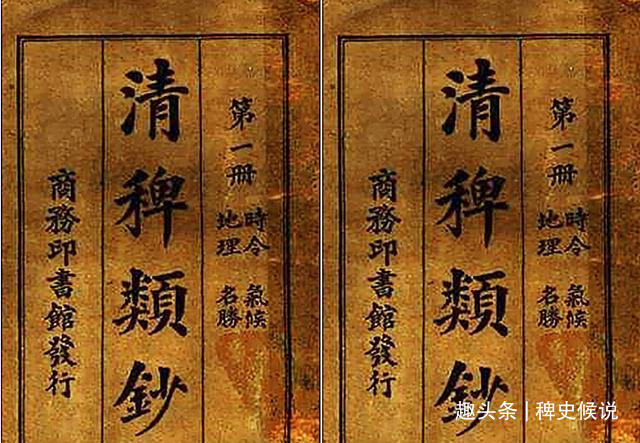 第一冊
時令 氣候
地理 名勝
清稗類鈔
商務印書館發行
第一冊
時令 氣候
地理 名勝
清稗類鈔
商務印書館發行
趣头条 | 稗史候说